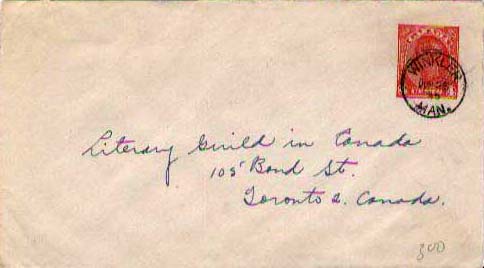 CANADA
WINKLER
MAN.
Literary Guild in Canada
105 Bond St.
Toronto 2. Canada.
300